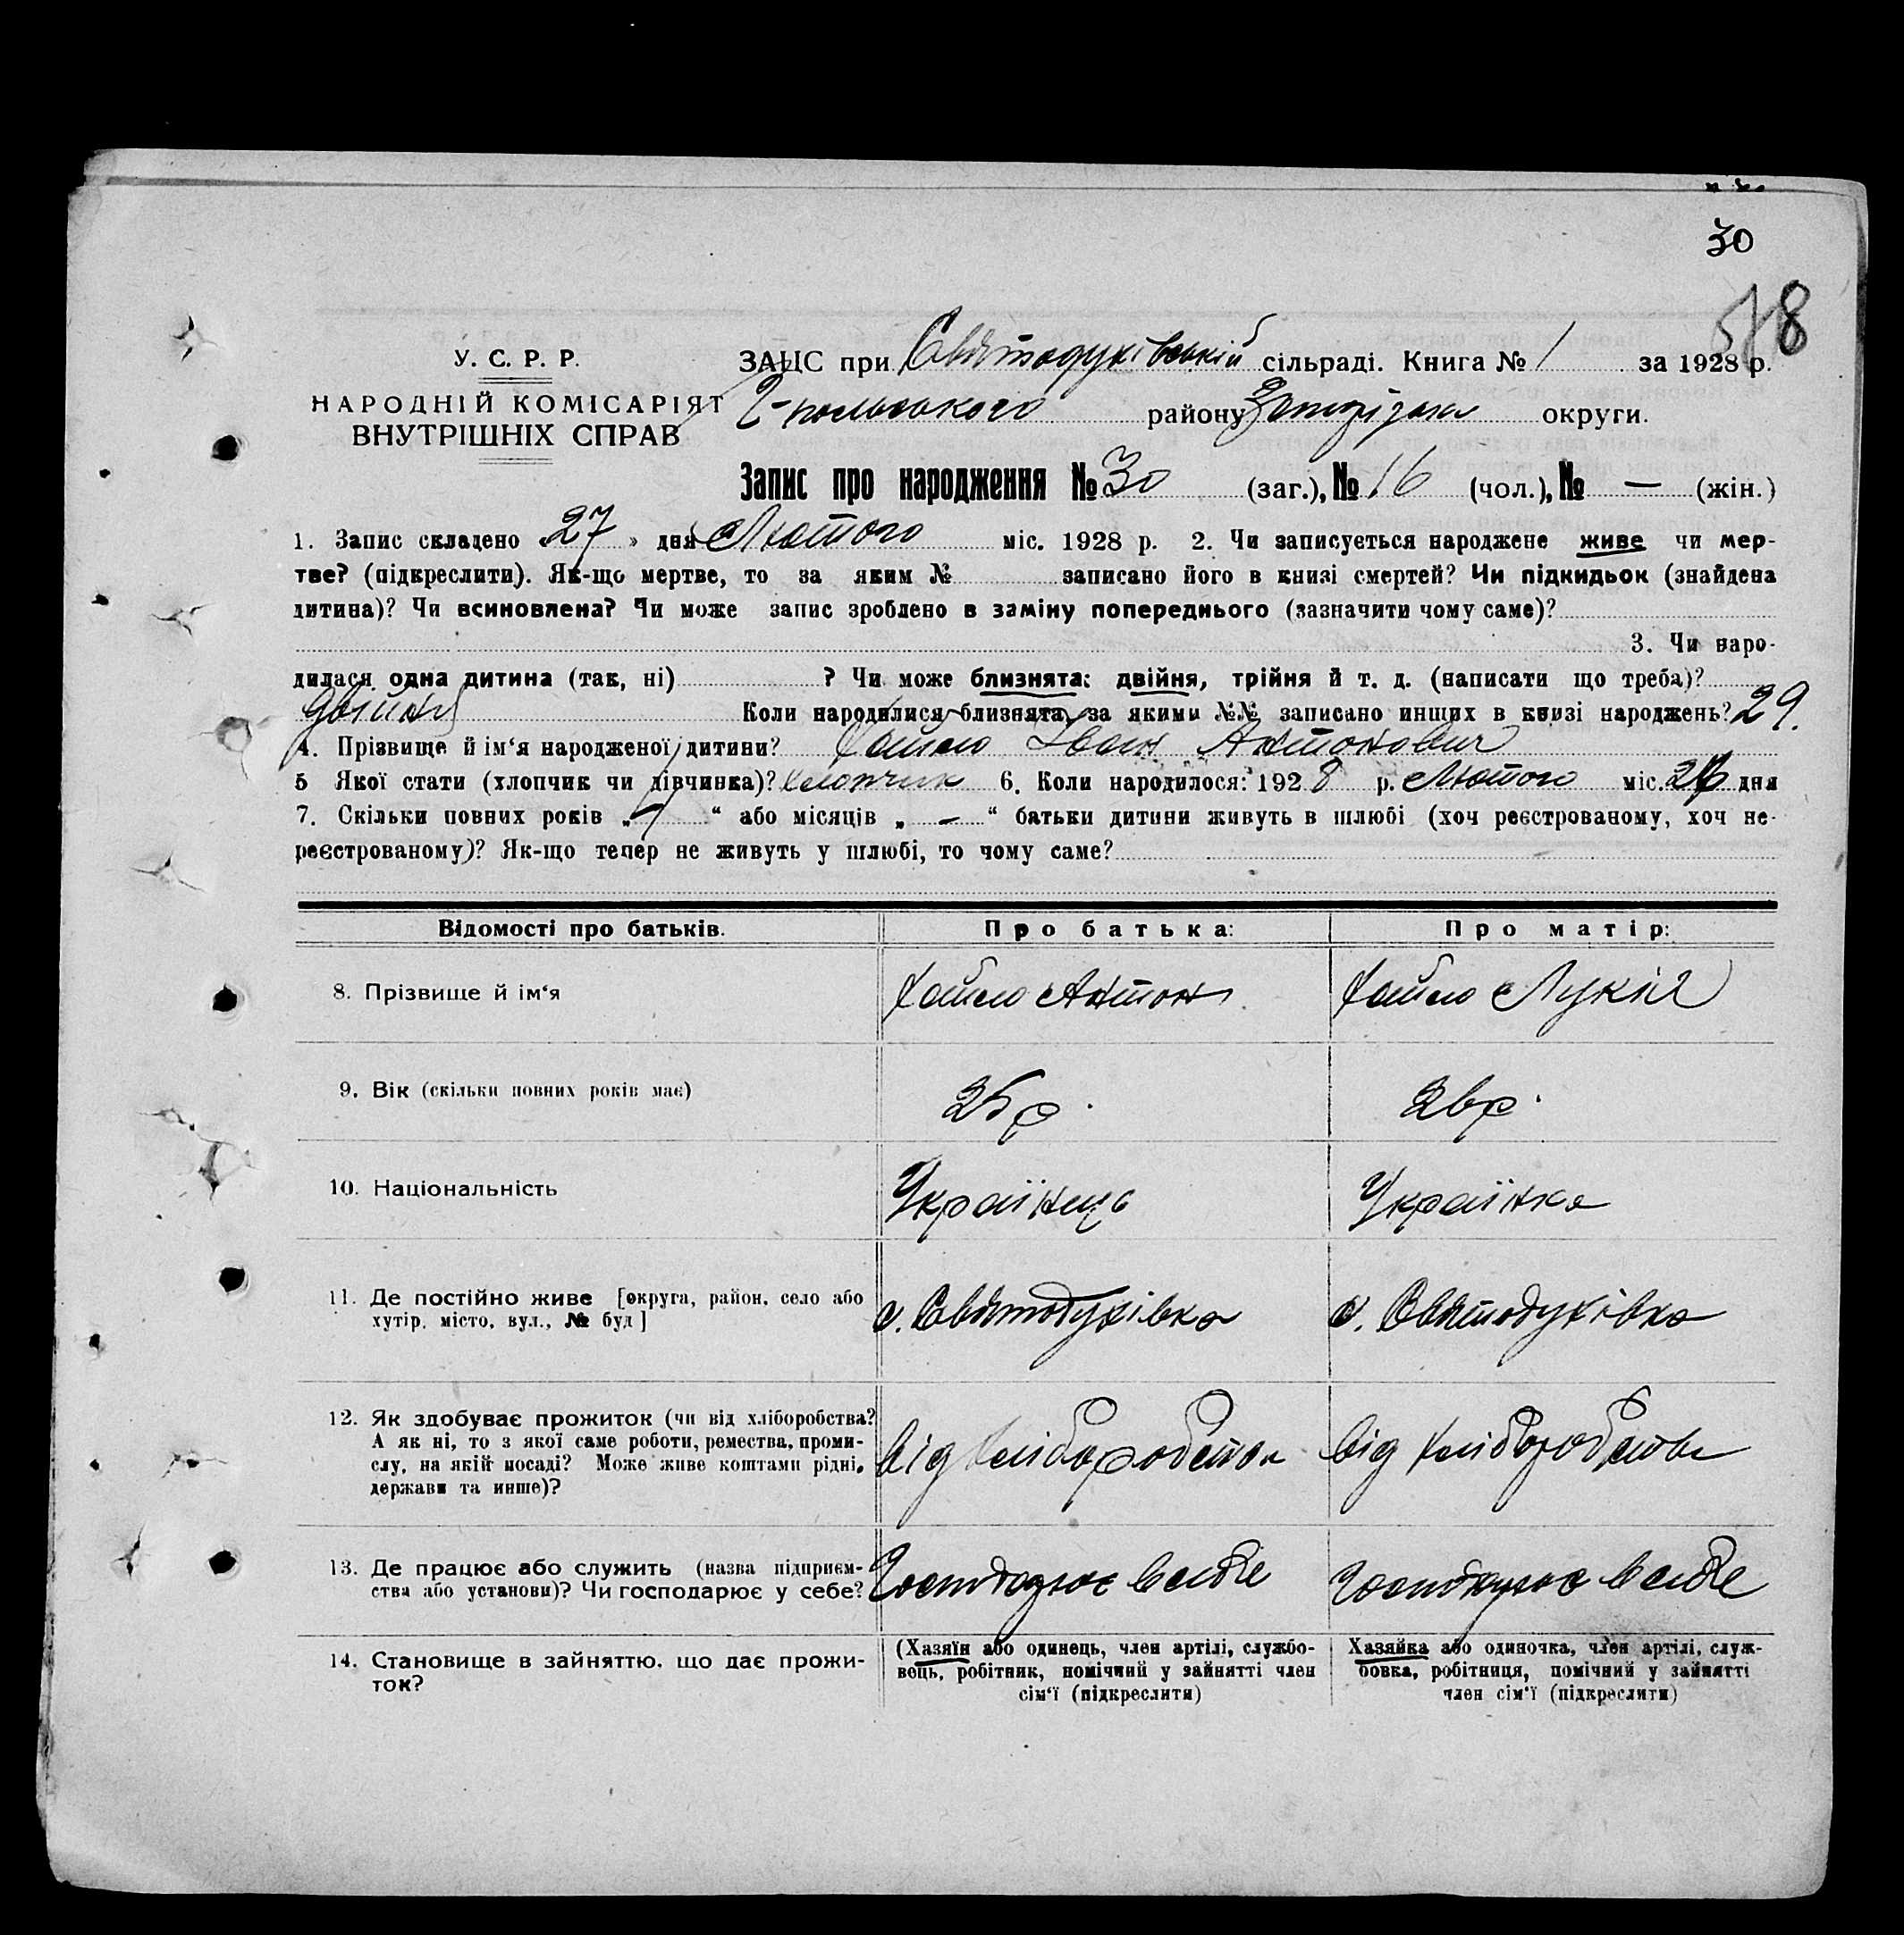 30
518
У. С. Р. Р.
НАРОДНІЙ КОМІСАРІЯТ
ВНУТРІШНІХ СПРАВ
ЗАЦС при Святодухівській сільраді. Книга № 1 за 1928 р.
району округи.
Запис про народження № 30 (заг.), № 16 (чол.), № — (жін.)
1. Запис складено « 27 » дня Лютого міс. 1928 р. 2. Чи записується народжене живе чи мер-
тве? (підкреслити). Як-що мертве, то за яким № записано його в книзі смертей? Чи підкидьок (знайдена
дитина)? Чи всиновлена? Чи може запис зроблено в заміну попереднього (зазначити чому саме)?
3. Чи наро-
дилася одна дитина (так, ні) ? Чи може близнята: двійня, трійня й т. д. (написати що треба)?
двійня Коли народилися близнята, за якими №№ записано инших в книзі народжень? 29.
4. Прізвище й ім‘я народженої дитини? Іван Антонович
5 Якої стати (хлопчик чи дівчинка)? Хлопчик 6. Коли народилося: 1928 р. Лютого міс. дня
7. Скільки повних років „ “ або місяців „ — “ батьки дитини живуть в шлюбі (хоч реєстрованому, хоч не-
реєстрованому)? Як-що тепер не живуть у шлюбі, то чому саме?
Відомості про батьків. Про батька: Про матір:
8. Прізвище й ім‘я Антон Лукія
9. Вік (скільки повних років має) 25 р. 26 р.
10. Національність Українець Українка
11. Де постійно живе [округа, район, село або с. Святодухівка с. Святодухівка
хутір, місто, вул., № буд]
12. Як здобуває прожиток (чи від хліборобства?
А як ні, то з якої саме роботи, ремества, проми- від хліборобства від хліборобства
слу, на якій посаді? Може живе коштами рідні,
держави та инше)?
13. Де працює або служить (назва підприєм- Господарює в себе Господарює в себе
ства або установи)? Чи господарює у себе?
14. Становище в зайняттю, що дає прожи-
ток?
(Хазяїн або одинець, член артілі, службо-
вець, робітник, помічний у зайнятті член
сім‘ї (підкреслити)
Хазяйка або одиночка, член артілі, служ-
бовка, робітниця, помічний у зайнятті
член сім‘ї (підкреслити)